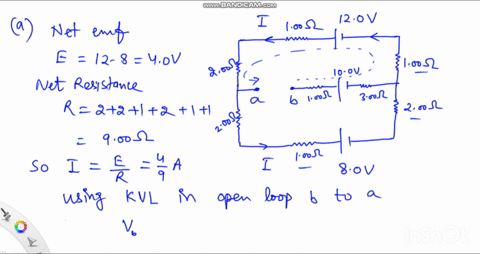 www.BANDICAM.com
(a) Net emf
E = 12-8 = 4.0V
Net Resistance
R = 2+2+1+2+1+1
= 9.00Ω
So I = E/R = 4/9 A
using KVL in open loop b to a
V_b
I
1.00Ω
12.0V
2.00Ω
1.00Ω
10.0V
a
b
1.00Ω
3.00Ω
2.00Ω
2.00Ω
I
1.00Ω
8.0V